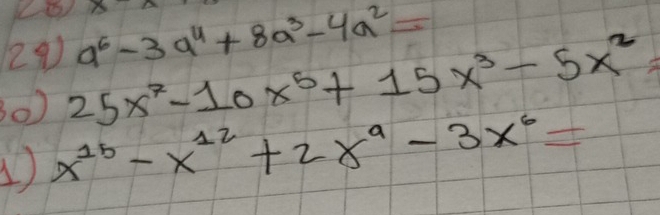 28) x - x
29) a⁶ - 3a⁴ + 8a³ - 4a² =
30) 25x⁷ - 10x⁵ + 15x³ - 5x² =
1) x¹⁵ - x¹² + 2x⁹ - 3x⁶ =